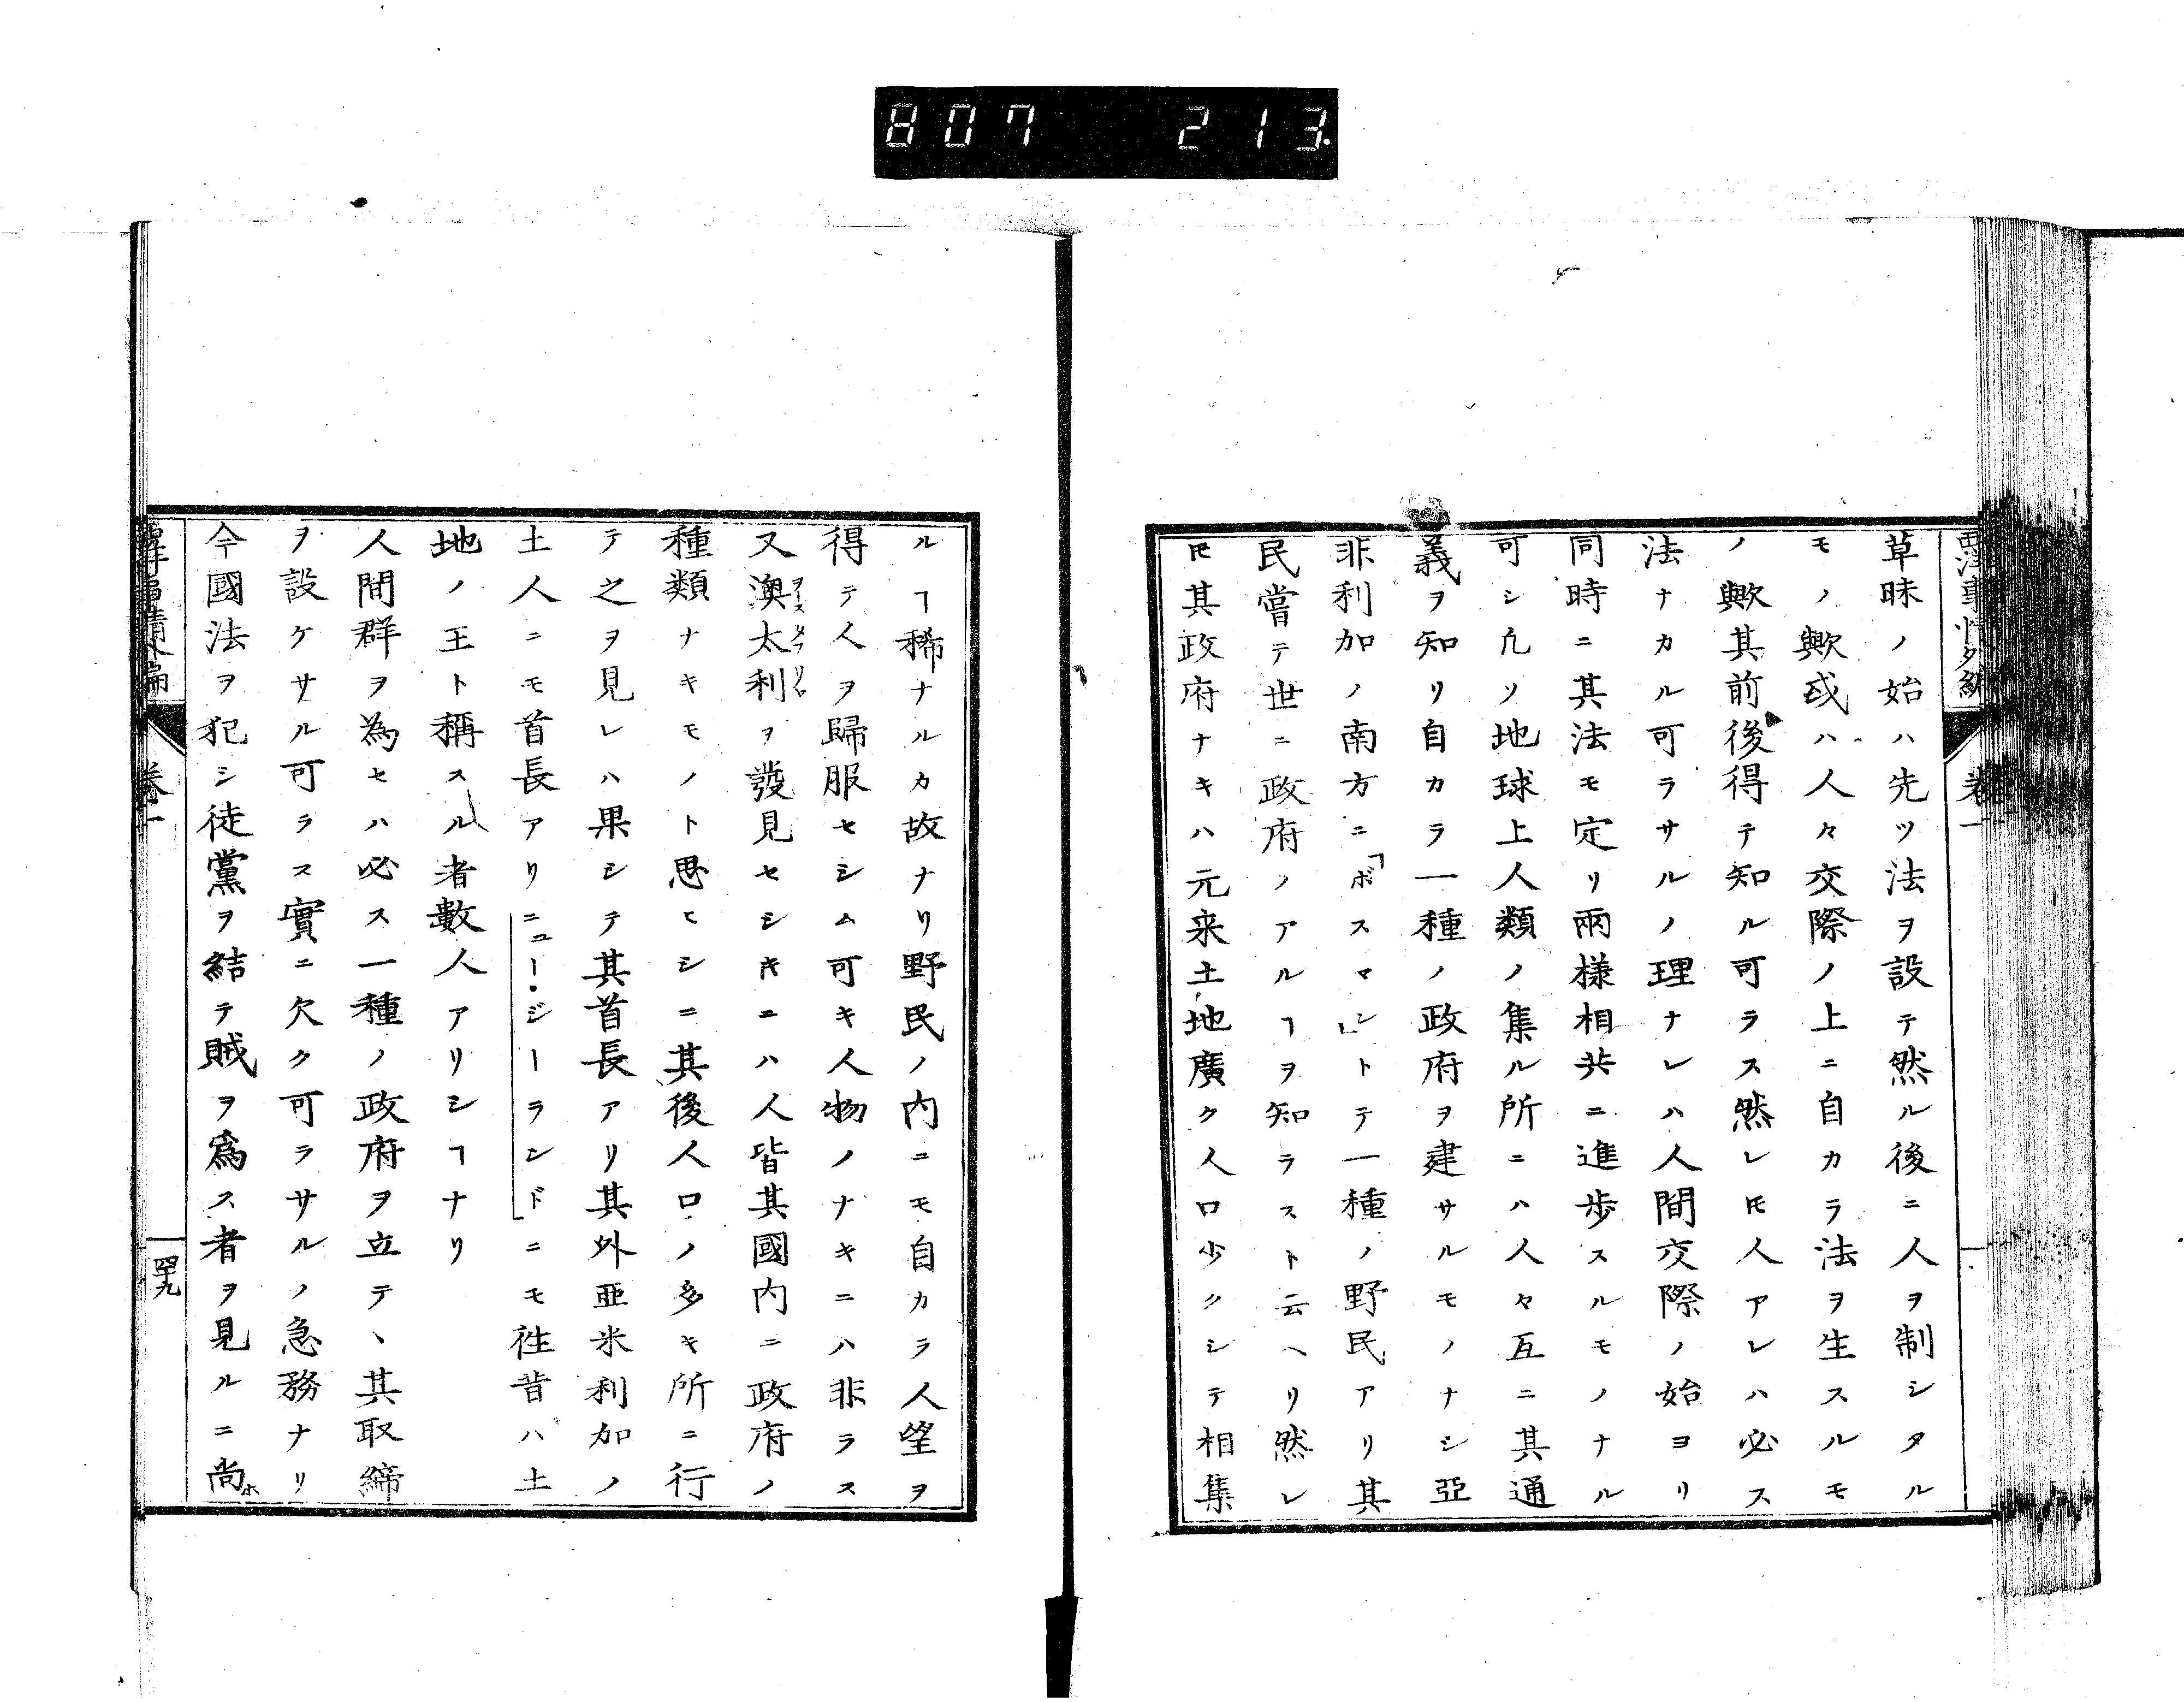 807 213
西洋事情外編 卷一
草昧ノ始ハ先ツ法ヲ設テ然ル後ニ人ヲ制シタル
モノ歟或ハ人々交際ノ上ニ自カラ法ヲ生スルモ
ノ歟其前後得テ知ル可ラス然レ𪜈人アレハ必ス
法ナカル可ラサルノ理ナレハ人間交際ノ始ヨリ
同時ニ其法モ定リ兩様相共ニ進歩スルモノナル
可シ凢ソ地球上人類ノ集ル所ニハ人々互ニ其通
義ヲ知リ自カラ一種ノ政府ヲ建サルモノナシ亞
非利加ノ南方ニ「ボスマン」トテ一種ノ野民アリ其
民嘗テ世ニ政府ノアルヿヲ知ラスト云ヘリ然レ
𪜈其政府ナキハ元来土地廣ク人口少クシテ相集
ルヿ稀ナルカ故ナリ野民ノ内ニモ自カラ人望ヲ
得テ人ヲ歸服セシム可キ人物ノナキニハ非ラス
又澳太利ヲ發見セシ𪜈ニハ人皆其國内ニ政府ノ
種類ナキモノト思ヒシニ其後人口ノ多キ所ニ行
テ之ヲ見レハ果シテ其首長アリ其外亜米利加ノ
土人ニモ首長アリニュー・ジーランドニモ徃昔ハ土
地ノ王ト稱スル者數人アリシヿナリ
人間群ヲ為セハ必ス一種ノ政府ヲ立テヽ其取締
ヲ設ケサル可ラス實ニ欠ク可ラサルノ急務ナリ
今國法ヲ犯シ徒黨ヲ結テ賊ヲ爲ス者ヲ見ルニ尚ホ
卷一
四十九